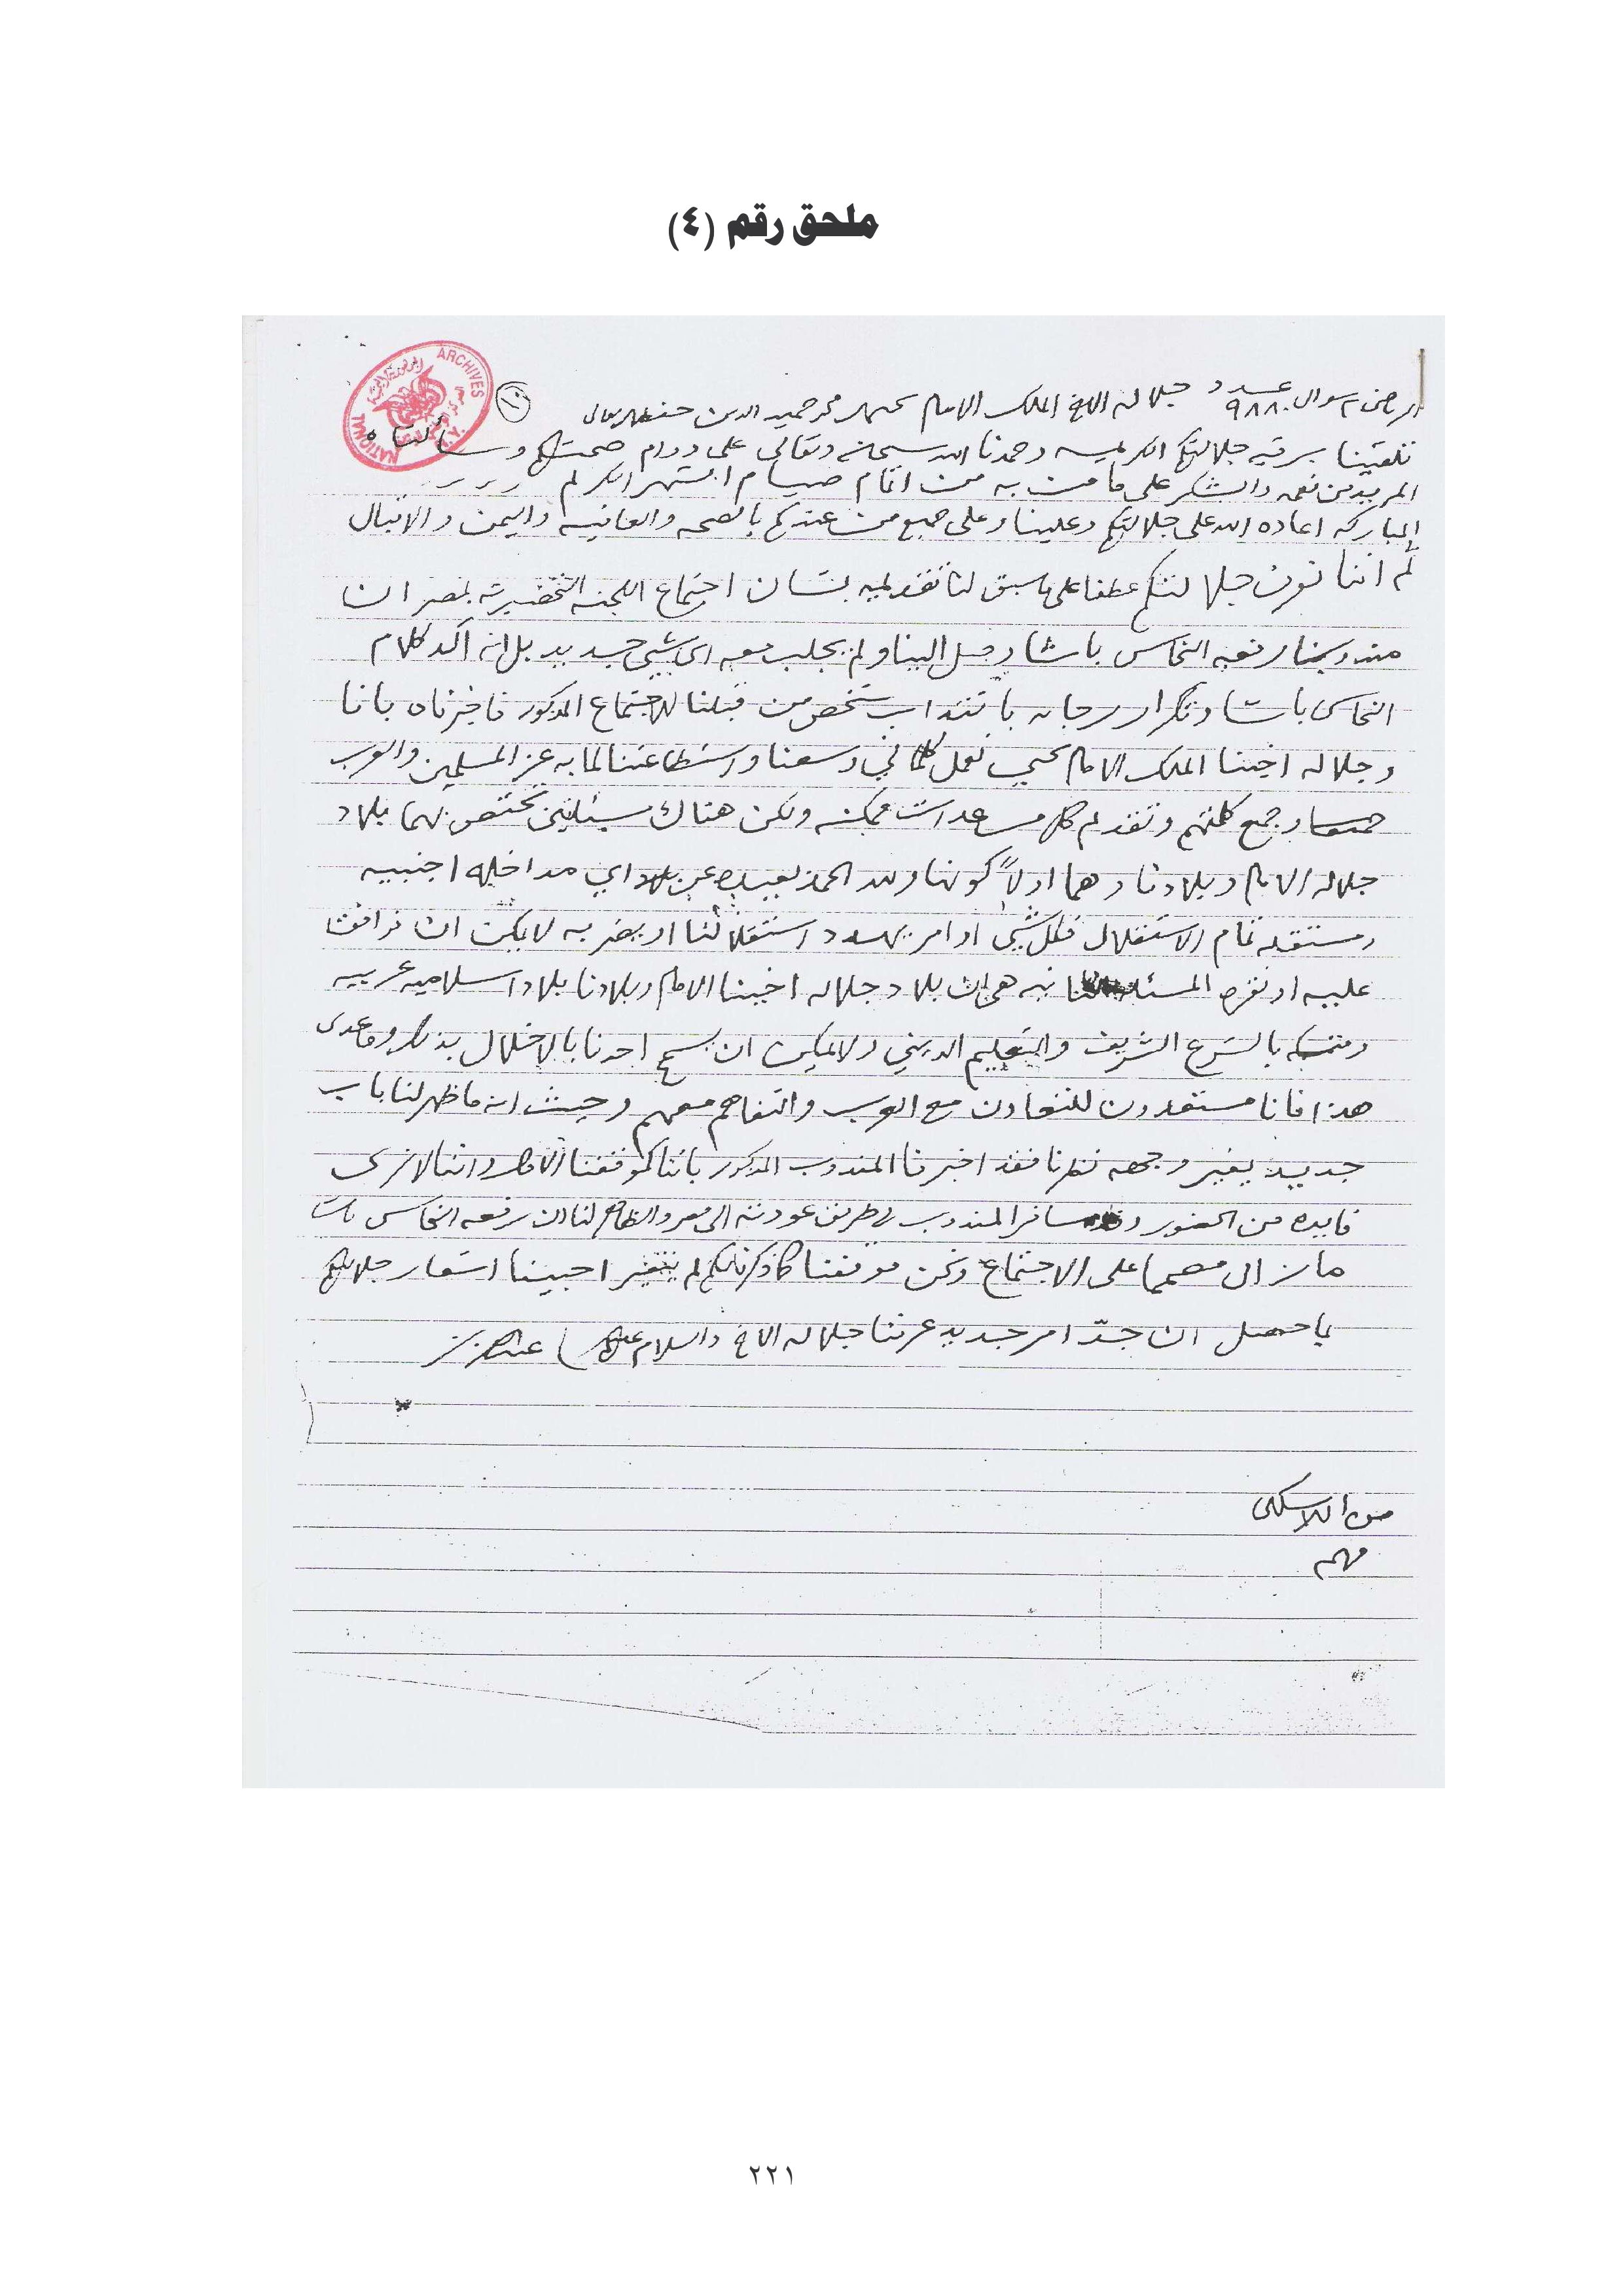 ملحق رقم (٤)
ARCHIVES
NATIONAL
Y.
١٠
الرياض ٢ شوال عدد ٩٨٨ جلالة الاخ الملك الامام يحيى محمد حميد الدين حفظه الله تعالى
تلقينا برقية جلالتكم الكريمه وحمدنا الله سبحانه وتعالى على دوام صحتكم وسألناه
المزيد من نعمه والشكر على ما من به من اتمام صيام الشهر الكريم
المباركه اعاده الله على جلالتكم وعلينا وعلى جميع من عندكم بالصحه والعافيه واليمن والاقبال
ثم اننا نعرف جلالتكم عطفا على ما سبق لنا تقديمه بشان اجتماع اللجنه التحضيرية بمصر ان
مندوب رفعه النحاس باشا وصل الينا ولم يجلب معه اى شيى جديد بل انه اكد كلام
النحاس باشا وتكرار رجاه بانتداب شخص من قبلنا للاجتماع المذكور فاخبرناه باننا
وجلاله اخينا الملك الامام يحيي نعمل كلما في وسعنا واستطاعتنا لما به عز المسلمين والعرب
جميعا وجمع كلمتهم وتقديم كل مساعدات ممكنه ولكن هناك مسئلتين تختص بهما بلاد
جلاله الامام وبلادنا وهما اولاً كونها ولله الحمد بعيده عن اي مداخله اجنبيه
ومستقله تمام الاستقلال فكل شيى او امر يهدد استقلالنا او يضر به لا يمكن ان نوافق
عليه او نقره المسئله الثانيه هي ان بلاد جلاله اخينا الامام وبلادنا بلاد اسلاميه عربيه
ومتمسكه بالشرع الشريف والتعليم الديني ولا يمكن ان يسمح احدنا بالاخلال بذلك وما عدى
هذا فانا مستعدون للتعاون مع العرب والتفاهم معهم وحيث انه ما ظهر لنا باب
جديد يغير وجهه نظرنا فقد اخبرنا المندوب المذكور باننا كموقفنا الاول واننا لا نرى
فايده من الحضور وقد سافر المندوب في طريق عودته الى مصر والظاهر لنا ان رفعه النحاس باشا
ما زال مصمما على الاجتماع ونحن موقفنا كما ذكرنا لكم لم يتغير احببنا اشعار جلالتكم
بما حصل ان جدّ امر جديد عرفنا جلاله الاخ والسلام عليكم عبد العزيز
من اللاسلكى
مهم
٢٢١